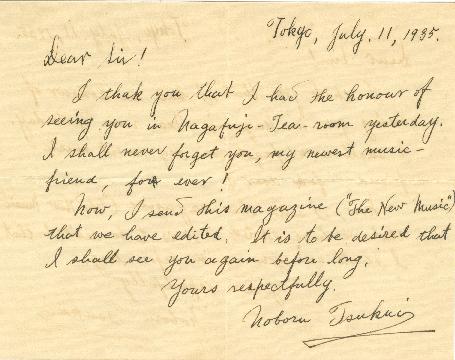 Tokyo, July. 11, 1935.
Dear Sir!
I thak you that I had the honour of
seeing you in Nagafuji-Tea-room yesterday.
I shall never forget you, my newest music-
friend, for ever!
Now, I send this magazine ("The New Music")
that we have edited. It is to be desired that
I shall see you again before long.
Yours respectfully.
Noboru Tsukui